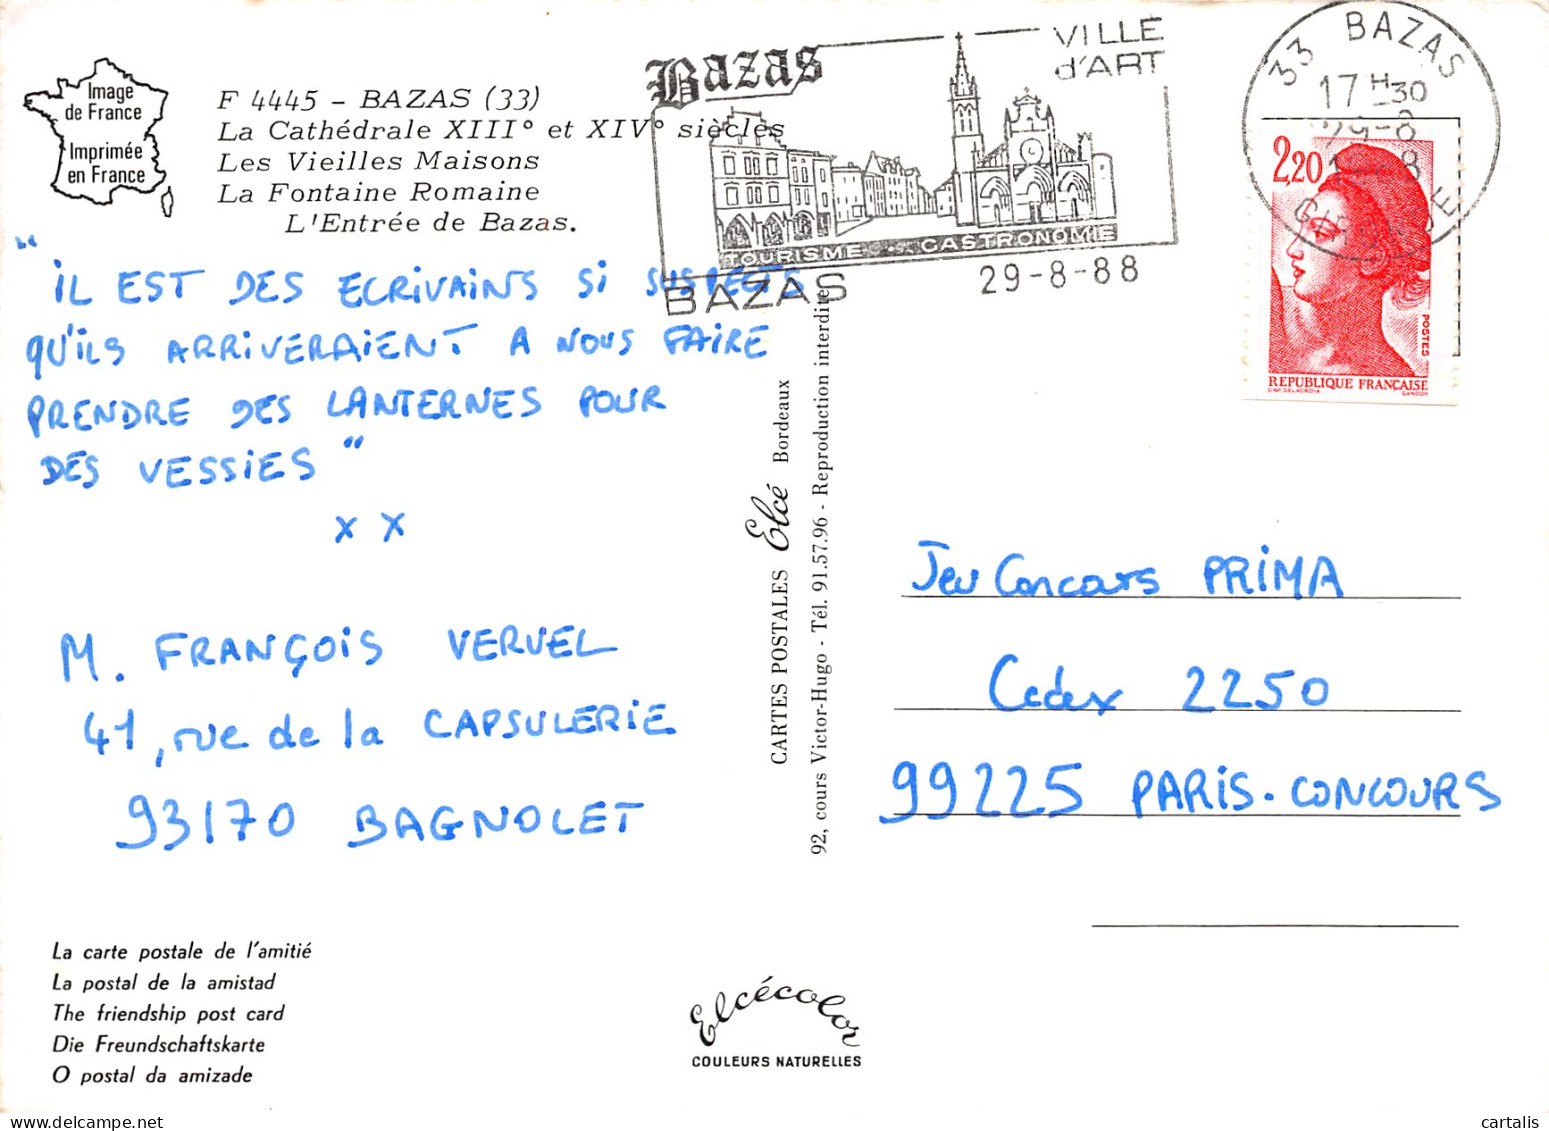 Image
de France
Imprimée
en France
F 4445 - BAZAS (33)
La Cathédrale XIII° et XIV° siècles
Les Vieilles Maisons
La Fontaine Romaine
L'Entrée de Bazas.
Bazas
VILLE
d'ART
TOURISME · GASTRONOMIE
BAZAS
29-8-88
33 BAZAS
17 H 30
29-8
GIRONDE
2,20
POSTES
REPUBLIQUE FRANÇAISE
D'AP. DELACROIX GANDON
"IL EST DES ECRIVAINS SI SUSPECTS
QU'ILS ARRIVERAIENT A NOUS FAIRE
PRENDRE DES LANTERNES POUR
DES VESSIES"
x x
M. FRANÇOIS VERVEL
41, rue de la CAPSULERIE
93170 BAGNOLET
CARTES POSTALES Elcé Bordeaux
92, cours Victor-Hugo - Tél. 91.57.96 - Reproduction interdite
Jeu Concours PRIMA
Cedex 2250
99225 PARIS-CONCOURS
La carte postale de l'amitié
La postal de la amistad
The friendship post card
Die Freundschaftskarte
O postal da amizade
Elcécolor
COULEURS NATURELLES
cartalis